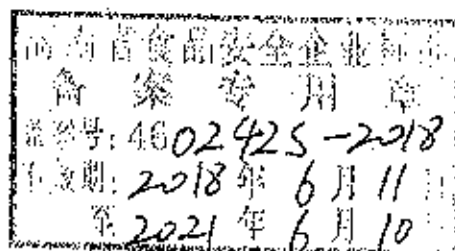 海南省食品安全企业标准
备案专用章
备案号:4602425-2018
有效期:2018年6月11日
至2021年6月10